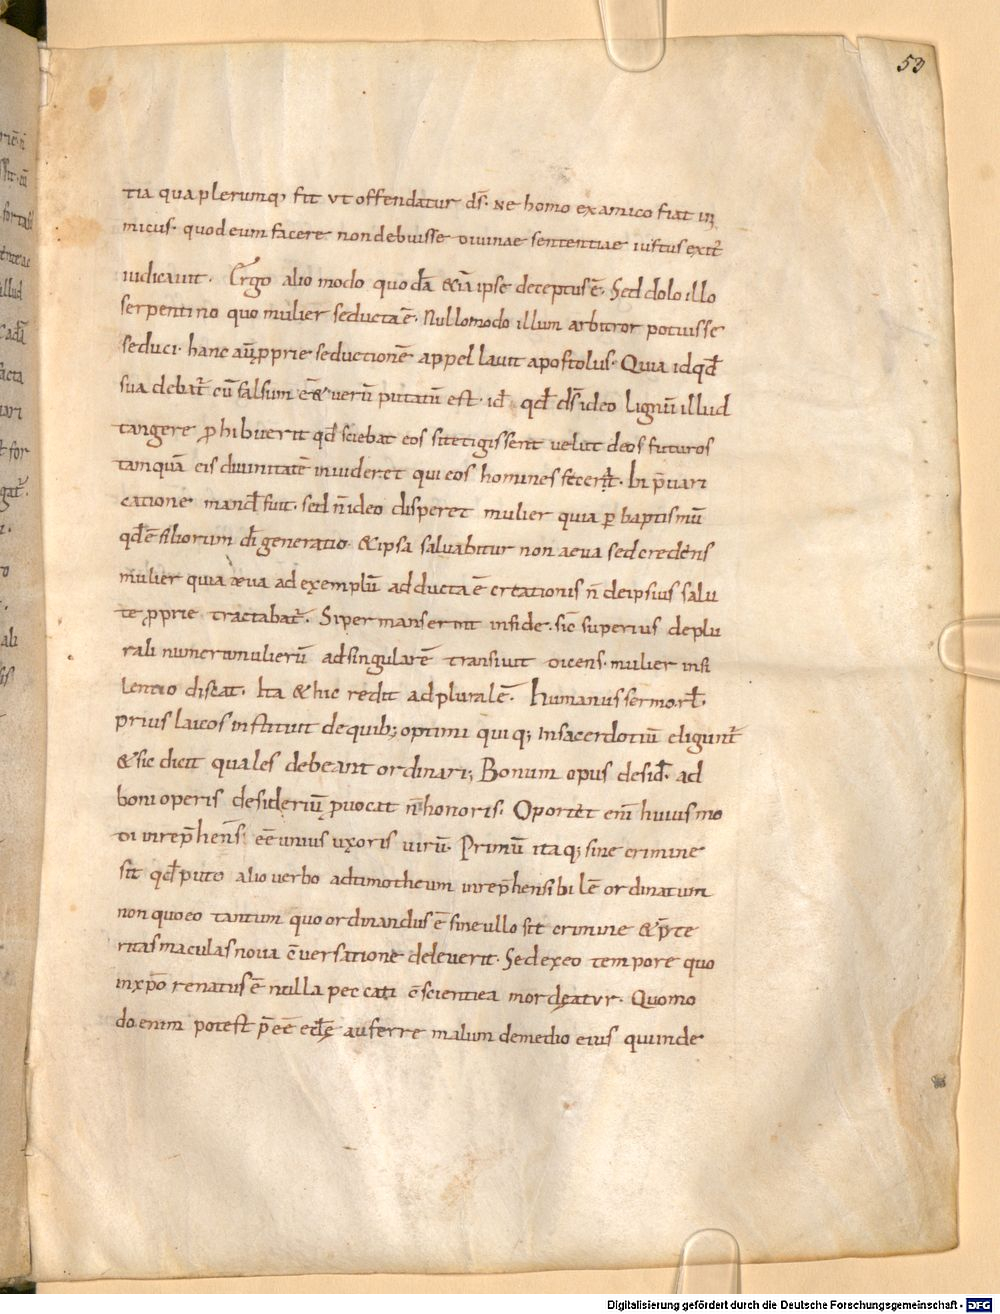 53
tia qua plerumq; fit ut offendatur d̄s. ne homo ex amico fiat in
micus. quod eum facere non debuisse divinae sententiae iustus exit̄
iudicavit. Ergo alio modo quodā & iā ipse deceptus ē. Sed dolo illo
serpentino quo mulier seducta ē. Nullo modo illum arbitror potuisse
seduci. hanc aūt pprie seductionē appellavit apostolus. Quia id qd̄
suadebat̄ cū falsum ēēt & verū putatū est. id qd̄ d̄s ideo lignū illud
tangere phibuerit qd̄ sciebat eos si tetigissent velut deos futuros
tamquā eis divinitatē invideret qui eos homines fecer̄t. In p̄vari
catione mand̄ fuit. sed n̄ ideo disperet mulier quia p baptismū
qd̄ ē filiorum d̄i generatio & ipsa salvabitur non aeva sed credens
mulier quia aeva ad exemplū adducta ē creationis n̄ de ipsius salu
te pprie tractabat̄. Si permanserint in fide. sic superius de plu
rali numero mulierū ad singularē transivit dicens. mulier in si
lentio discat. Ita & hic redit ad pluralē. Humanus sermo rl̄.
prius laicos instituit de quib; optimi quiq; in sacerdotiū eligunt̄
& sic dicit quales debeant ordinari; Bonum opus desid̄. ad
boni operis desideriū pvocat n̄ honoris. Oportet enī huiusmo
di inrep̄hens̄ ēē unius uxoris virū. Primū itaq; sine crimine
sit qd̄ puto alio verbo ad timotheum inrep̄hensibilē ordinatum
non quo eo tantum quo ordinandus ē sine ullo sit crimine & p̄te
ritas maculas nova c̄versatione deleverit. Sed ex eo tempore quo
in xp̄o renatus ē nulla peccati c̄scientiea mordeatur. Quomo
do enim potest p̄ēē eccl̄ę auferre malum de medio eius qui in de
Digitalisierung gefördert durch die Deutsche Forschungsgemeinschaft - DFG